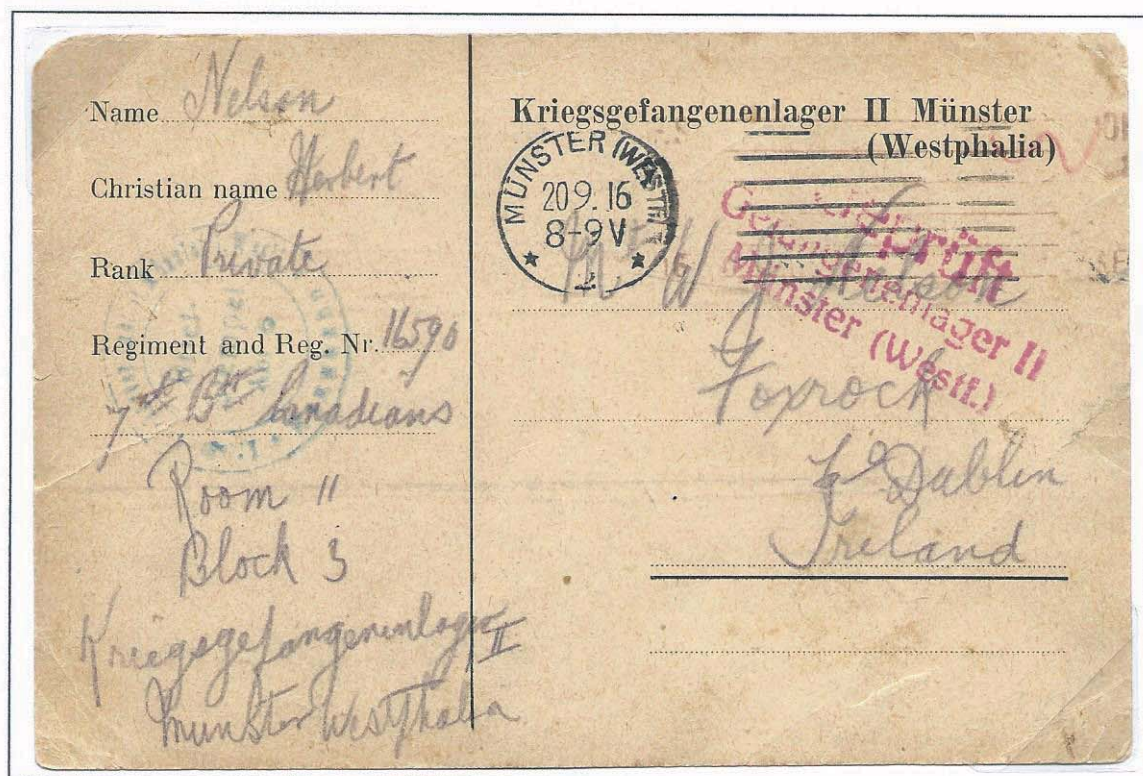 Name Nelson
Christian name Herbert
Rank Private
Regiment and Reg. Nr. 16590
7th Bn Canadians
Room 11
Block 3
Kriegsgefangenenlager II
Munster Westphalia
Kriegsgefangenenlager II Münster
(Westphalia)
MÜNSTER (WESTF.)
20 9. 16
8-9 V
Geprüft
Gefangenenlager II
Münster (Westf.)
W J Nelson
Foxrock
Co Dublin
Ireland